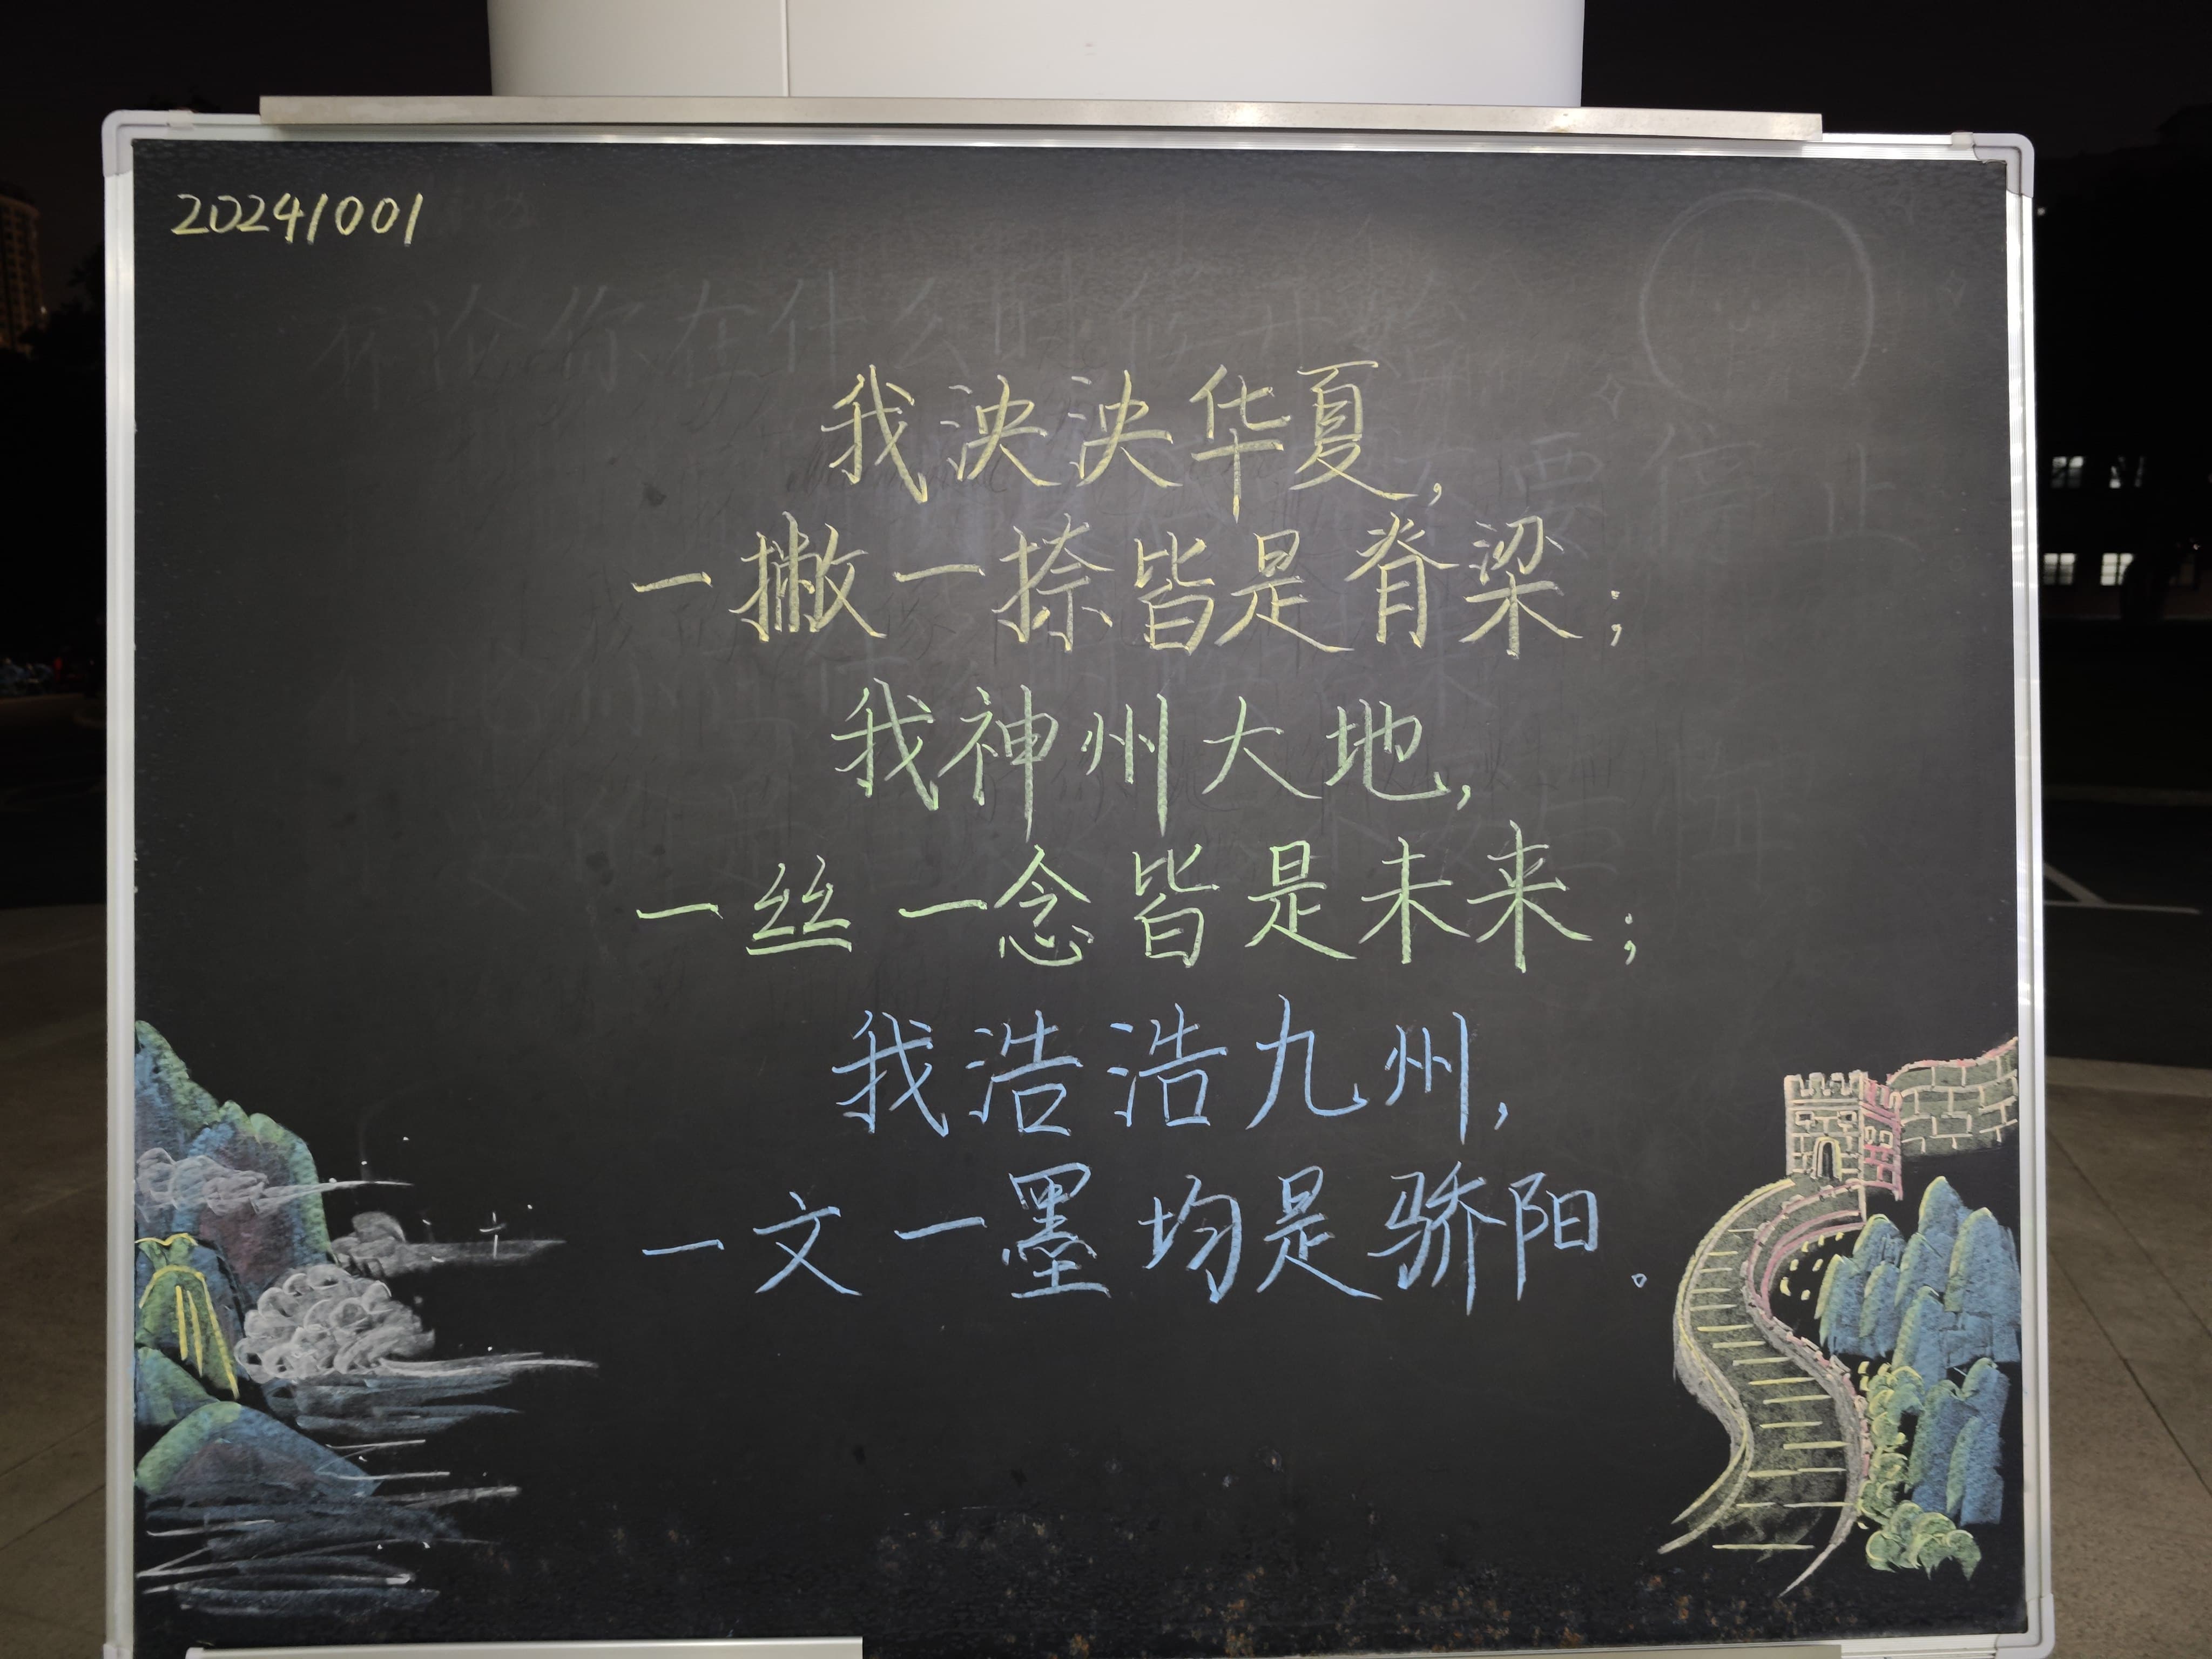 20241001
我泱泱华夏,
一撇一捺皆是脊梁;
我神州大地,
一丝一念皆是未来;
我浩浩九州,
一文一墨均是骄阳。